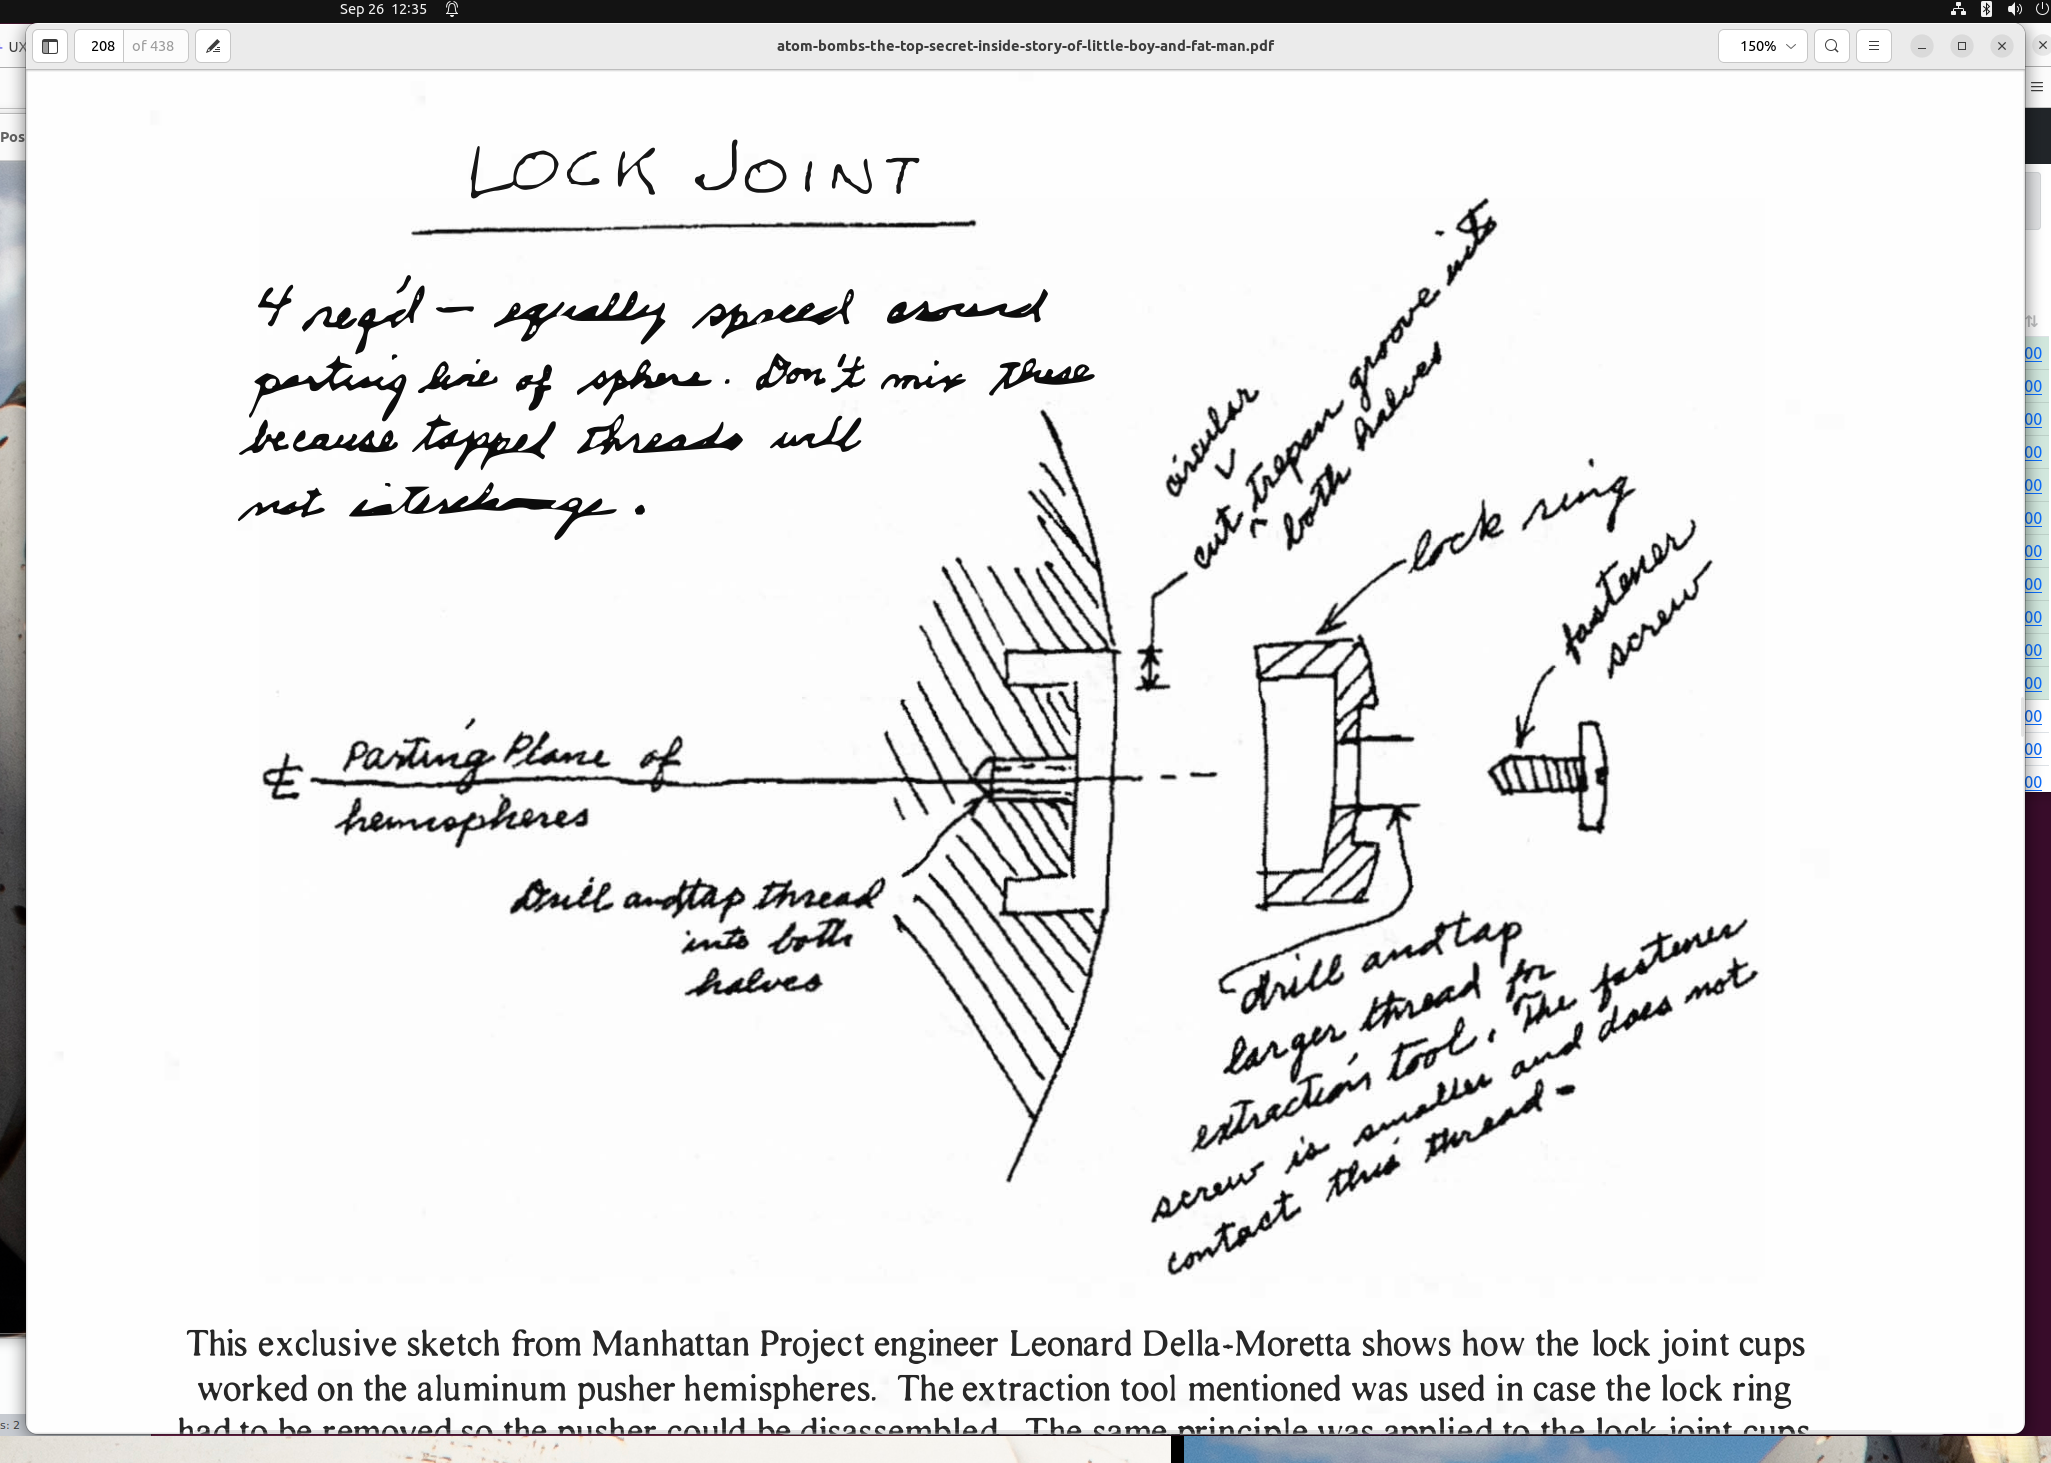 Sep 26 12:35
208 of 438
atom-bombs-the-top-secret-inside-story-of-little-boy-and-fat-man.pdf
150%
LOCK JOINT
4 req'd — equally spaced around
parting line of sphere. Don't mix these
because tapped threads will
not interchange.
circular
cut trepan groove into
both halves
lock ring
fastener
screw
Parting Plane of
hemispheres
Drill and tap thread
into both
halves
drill and tap
larger thread for
extraction tool. The fastener
screw is smaller and does not
contact this thread -
This exclusive sketch from Manhattan Project engineer Leonard Della-Moretta shows how the lock joint cups
worked on the aluminum pusher hemispheres. The extraction tool mentioned was used in case the lock ring
had to be removed so the pusher could be disassembled. The same principle was applied to the lock joint cups
UX
Pos
s: 2
00
00
00
00
00
00
00
00
00
00
00
00
00
00